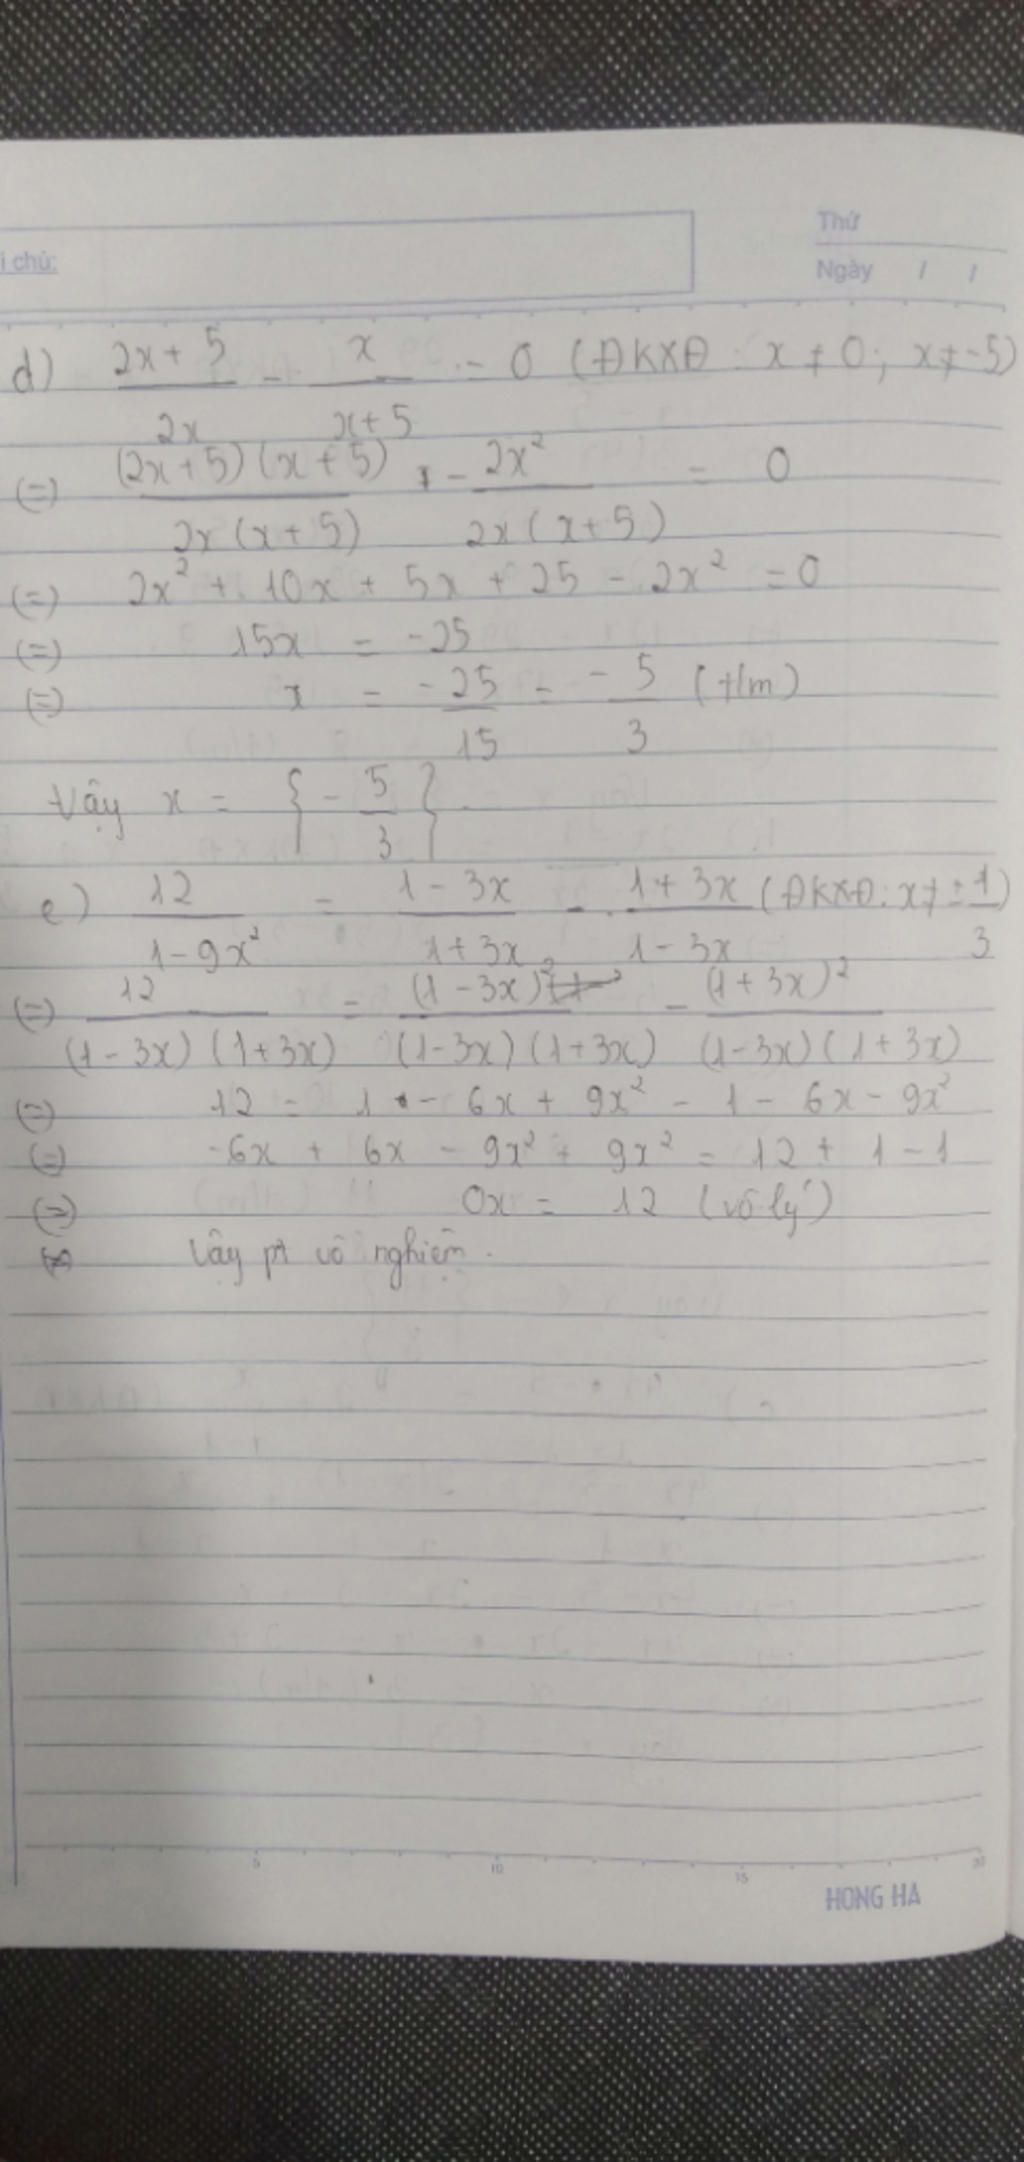 i chú:
Thứ
Ngày / /
d) (2x + 5)/(2x) - x/(x+5) = 0 (ĐKXĐ: x ≠ 0; x ≠ -5)
(=) ((2x+5)(x+5))/(2x(x+5)) - 2x²/(2x(x+5)) = 0
(=) 2x² + 10x + 5x + 25 - 2x² = 0
(=) 15x = -25
(=) x = -25/15 = -5/3 (t/m)
Vậy x = {-5/3}
e) 12/(1-9x²) = (1-3x)/(1+3x) - (1+3x)/(1-3x) (ĐKXĐ: x ≠ ±1/3)
(=) 12/((1-3x)(1+3x)) = (1-3x)²/((1-3x)(1+3x)) - (1+3x)²/((1-3x)(1+3x))
(=) 12 = 1 - 6x + 9x² - 1 - 6x - 9x²
(=) -6x + 6x - 9x² + 9x² = 12 + 1 - 1
(=) 0x = 12 (vô lý)
Vậy pt vô nghiệm.
5 10 15 20
HONG HA